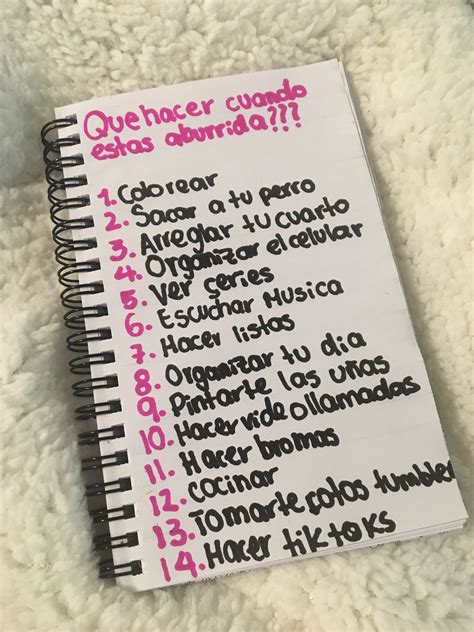 Que hacer cuando
estas aburrida???
1. Colorear
2. Sacar a tu perro
3. Arreglar tu cuarto
4. Organizar el celular
5. Ver series
6. Escuchar Musica
7. Hacer listas
8. Organizar tu dia
9. Pintarte las uñas
10. Hacer videollamadas
11. Hacer bromas
12. Cocinar
13. Tomarte fotos tumbler
14. Hacer tiktoks